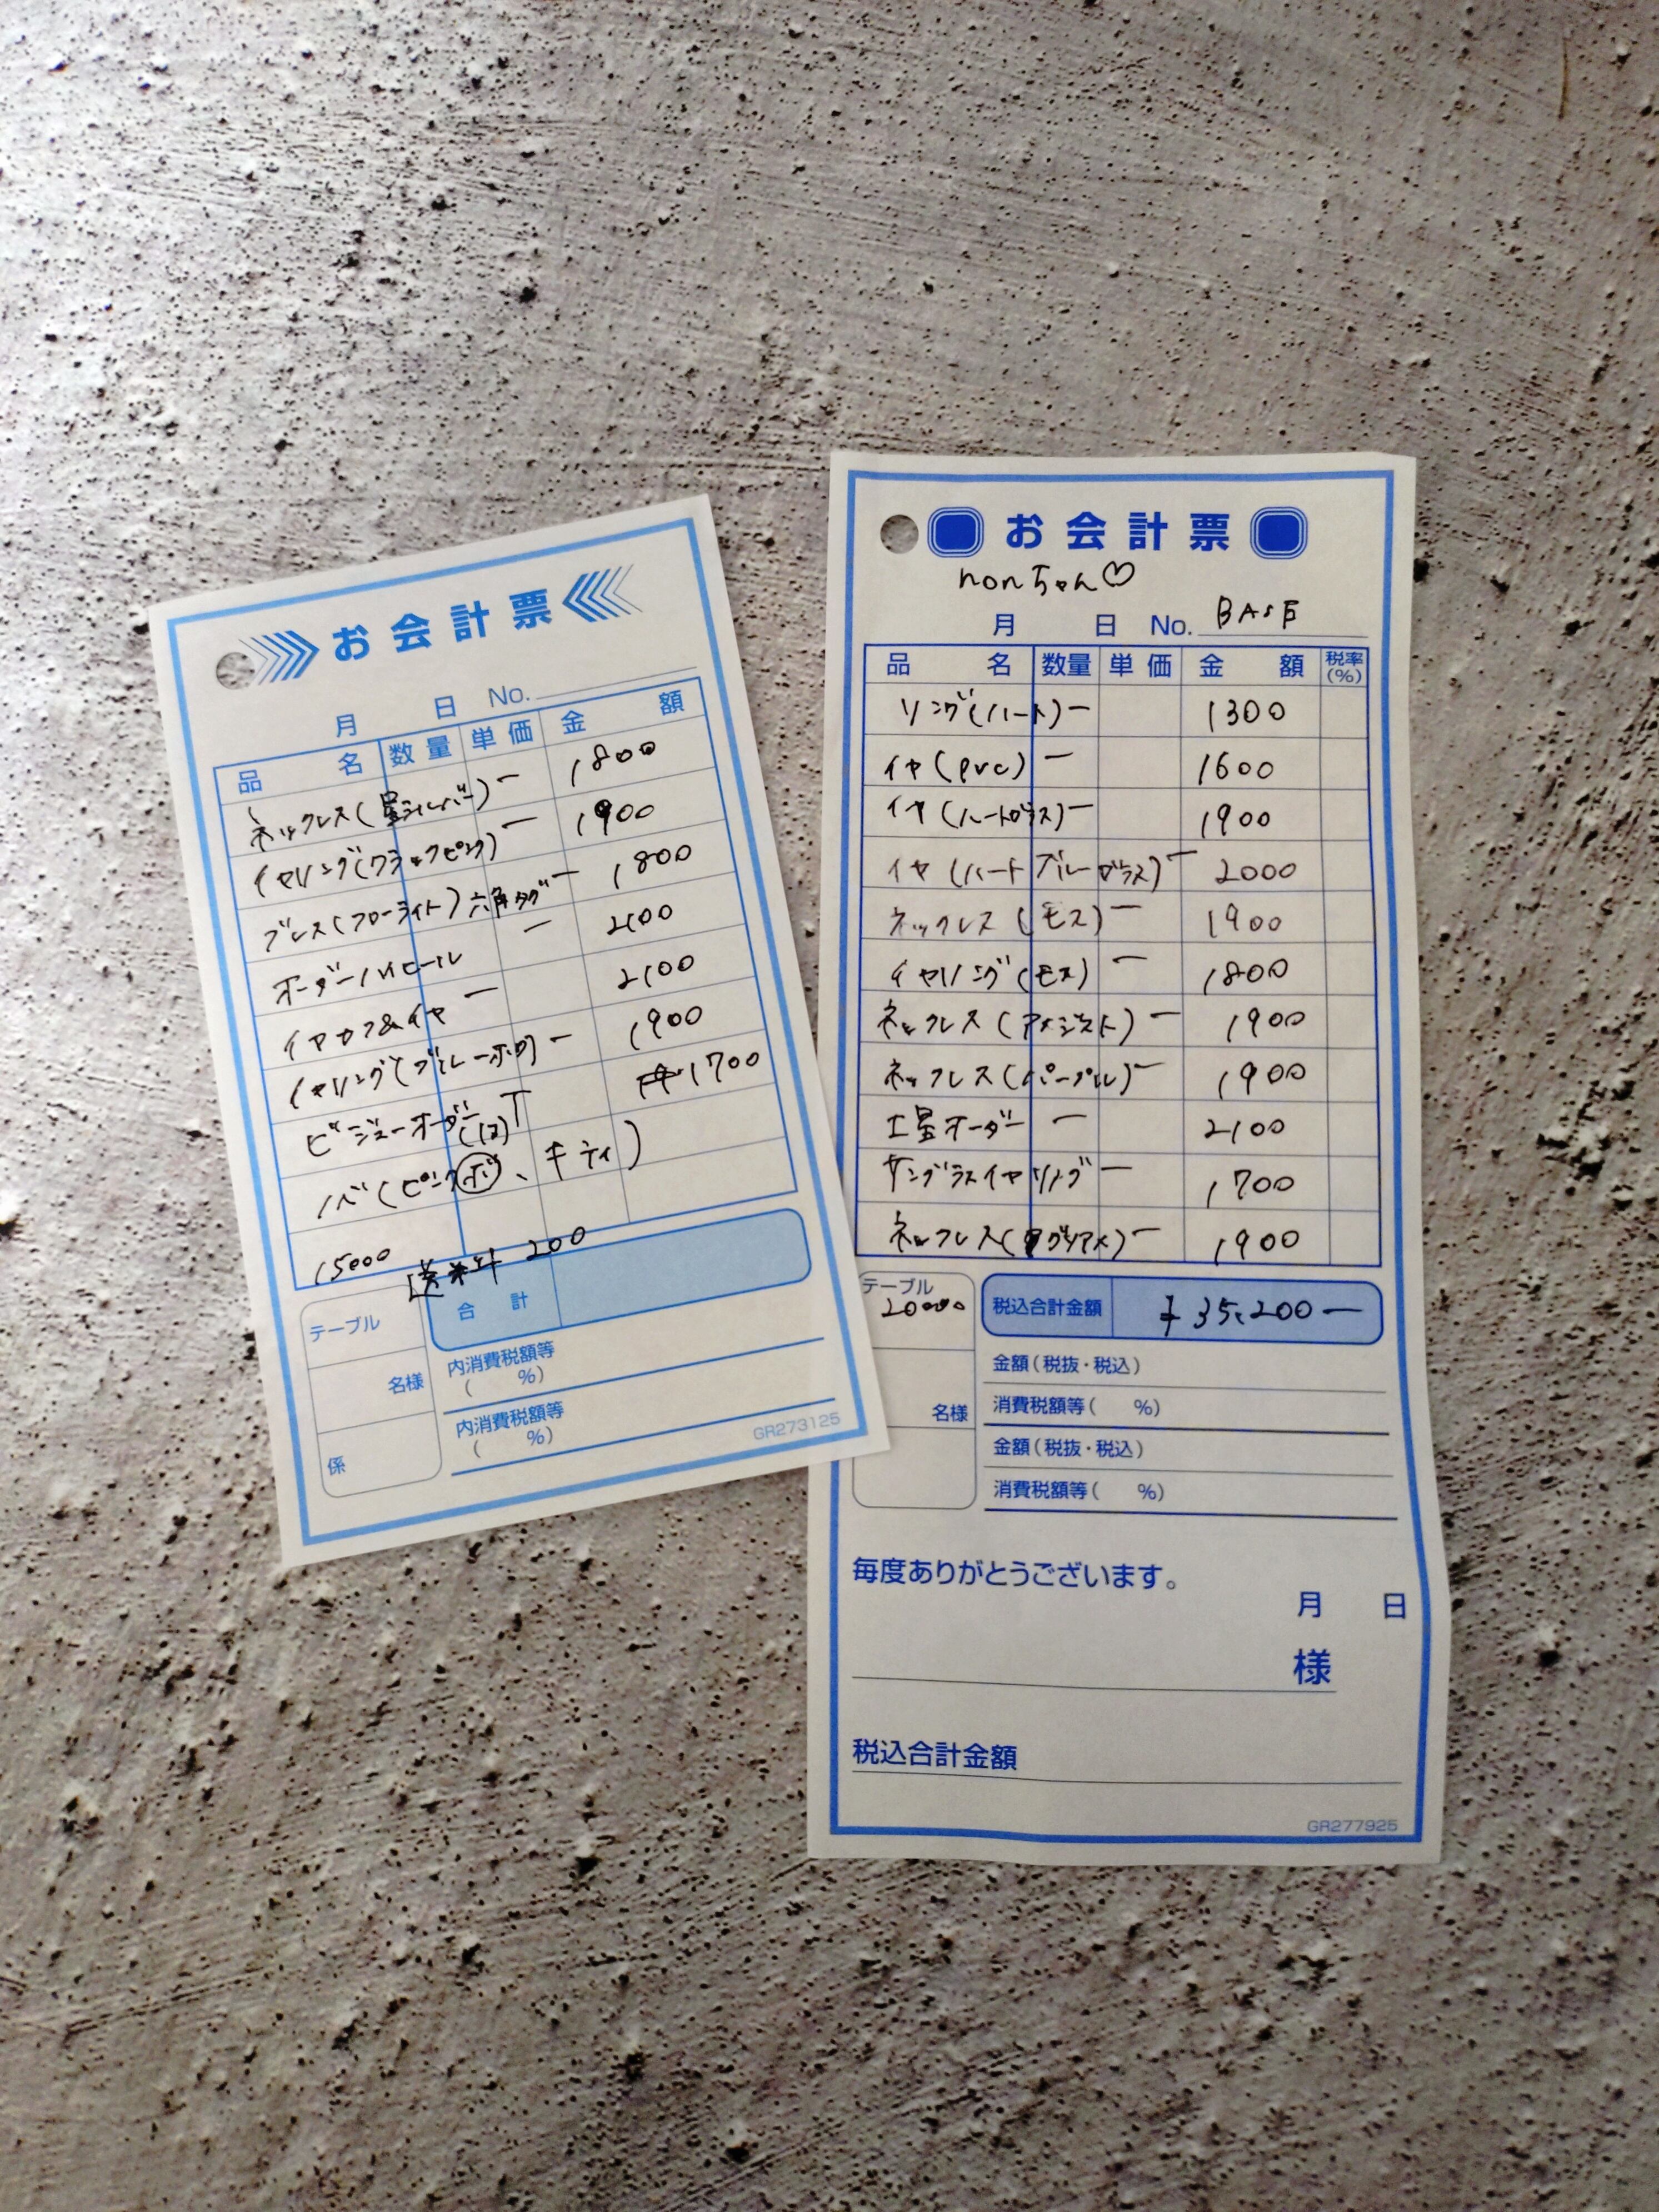 お会計票
月 日 No.
品名 数量 単価 金額
ネックレス(星シルバー) ー 1800
イヤリング(クラックピンク) ー 1900
ブレス(フローライト)六角タグ ー 1800
オーダーハイヒール ー 2100
イヤカフ&イヤ ー 2100
イヤリング(ブルー ー 1900
ビジューオーダー 1700
(ピンク ボ、キティ)
15000 送料 200
テーブル 合計
名様 内消費税額等
( %)
係 内消費税額等
( %)
GR273125
お会計票
nonちゃん♡
月 日 No. BASE
品名 数量 単価 金額 税率(%)
リング(ハート) ー 1300
イヤ(PVC) ー 1600
イヤ(ハートガラス) ー 1900
イヤ(ハートブルーガラス) ー 2000
ネックレス(モス) ー 1900
イヤリング(モス) ー 1800
ネックレス(アメジスト) ー 1900
ネックレス(パープル) ー 1900
土星オーダー ー 2100
サングラスイヤリング ー 1700
ネックレス( ー 1900
テーブル
20000 税込合計金額 ¥35,200ー
金額(税抜・税込)
名様 消費税額等( %)
金額(税抜・税込)
消費税額等( %)
毎度ありがとうございます。
月 日
様
税込合計金額
GR277925